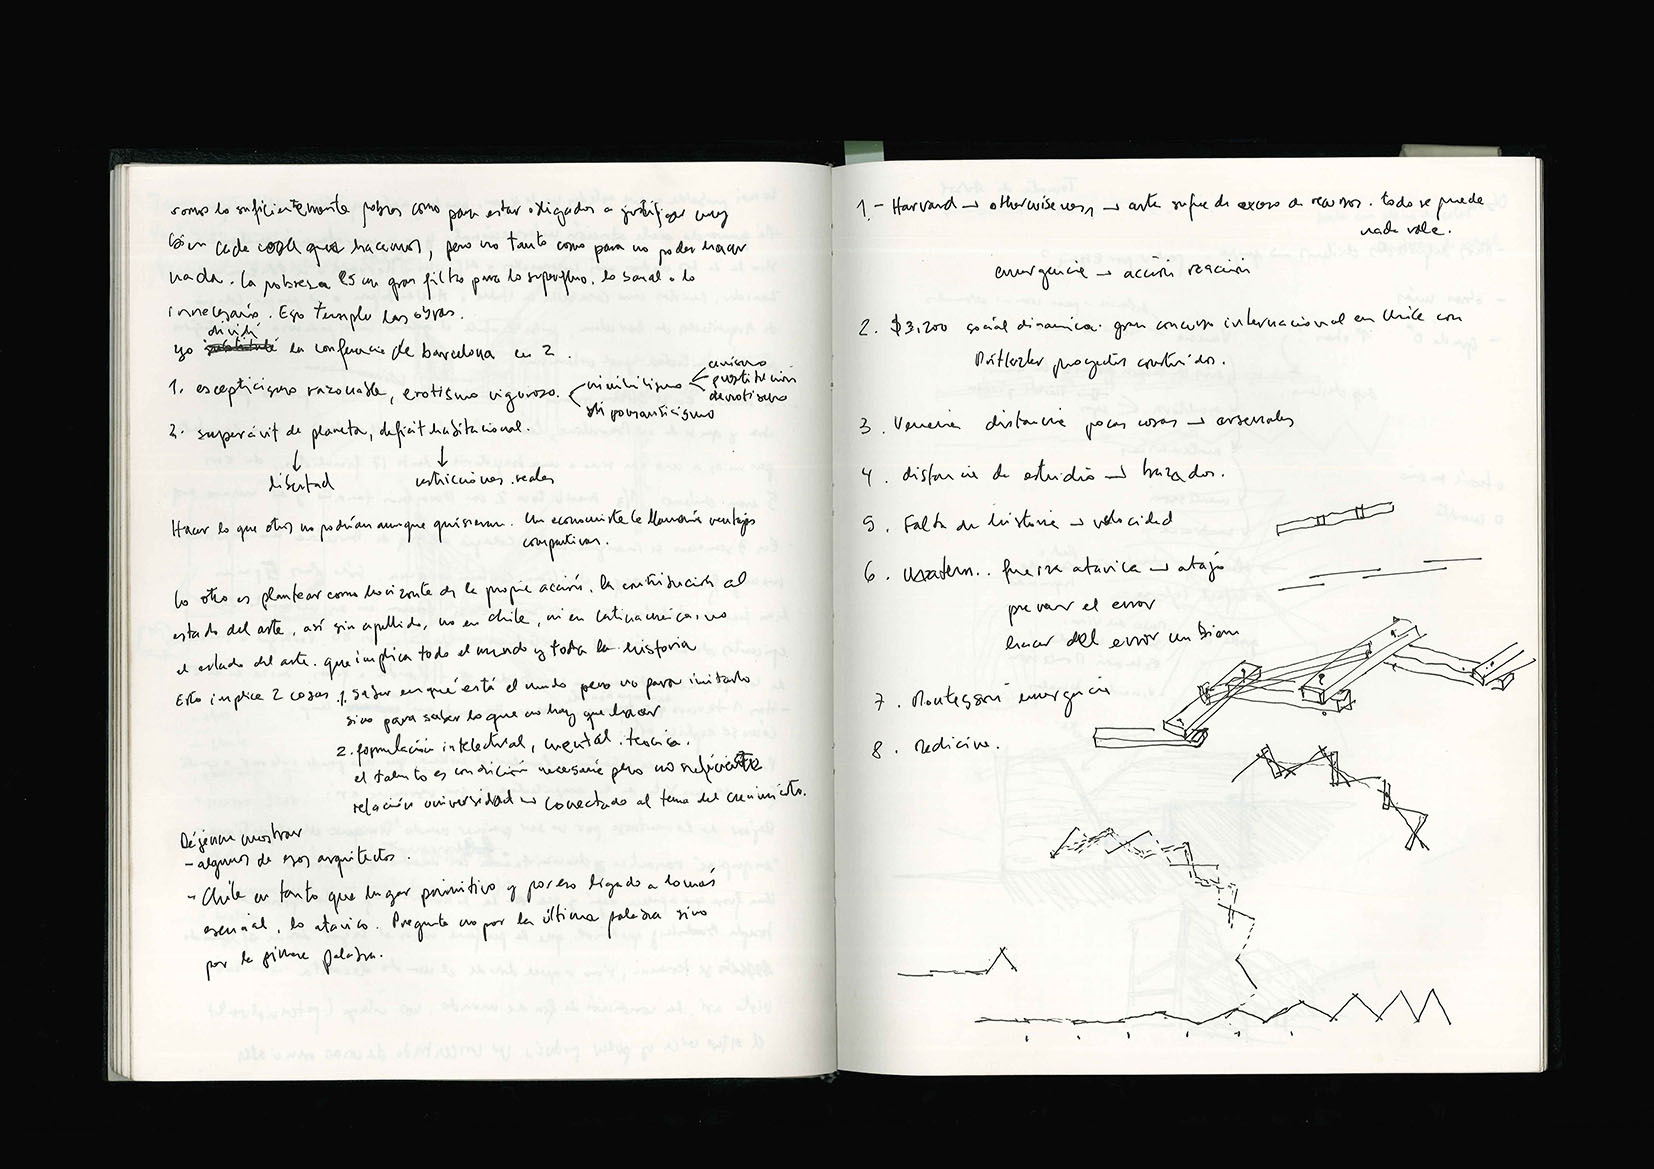 somos lo suficientemente pobres como para estar obligados a justificar muy
bien cada cosa que hacemos, pero no tanto como para no poder hacer
nada. La pobreza es un gran filtro para lo superfluo, lo banal o lo
innecesario. Eso templa las obras.
dividí
yo la conferencia de barcelona en 2.
1. escepticismo razonable, erotismo vigoroso.
nihilismo
romanticismo
cinismo
prostitución
derrotismo
2. superávit de planeta, deficit habitacional.
libertad
restricciones reales
Hacer lo que otros no podrían aunque quisieran. Un economista le llamaría ventajas
comparativas.
Lo otro es plantear como horizonte de la propia acción, la contribución al
estado del arte, así sin apellido, no en chile, ni en latinoamérica, no
el estado del arte. que implica todo el mundo y toda la historia
Esto implica 2 cosas. 1. saber en qué está el mundo pero no para imitarlo
sino para saber lo que no hay que hacer
2. formulación intelectual, mental. teórica.
el talento es condición necesaria pero no suficiente
relación universidad → conectado al tema del crecimiento.
Déjenme mostrar
- algunos de esos arquitectos.
- Chile en tanto que lugar primitivo y por eso ligado a lo más
esencial, lo atávico. Pregunta no por la última palabra sino
por la primera palabra.
1.- Harvard → otherwiseness → arte sufre de exceso de recursos. todo se puede
nada vale.
emergencia → acción reacción
2. $3.200 social dinamica. gran concurso internacional en Chile con
proyectos construidos.
3. Venecia distancia pocas cosas → arsenales
4. distancia de estudio → trazados.
5. Falta de historia → velocidad
6. fuerza atavica → atajo
prever el error
hacer del error un bien
7. Montessori emergencia
8.